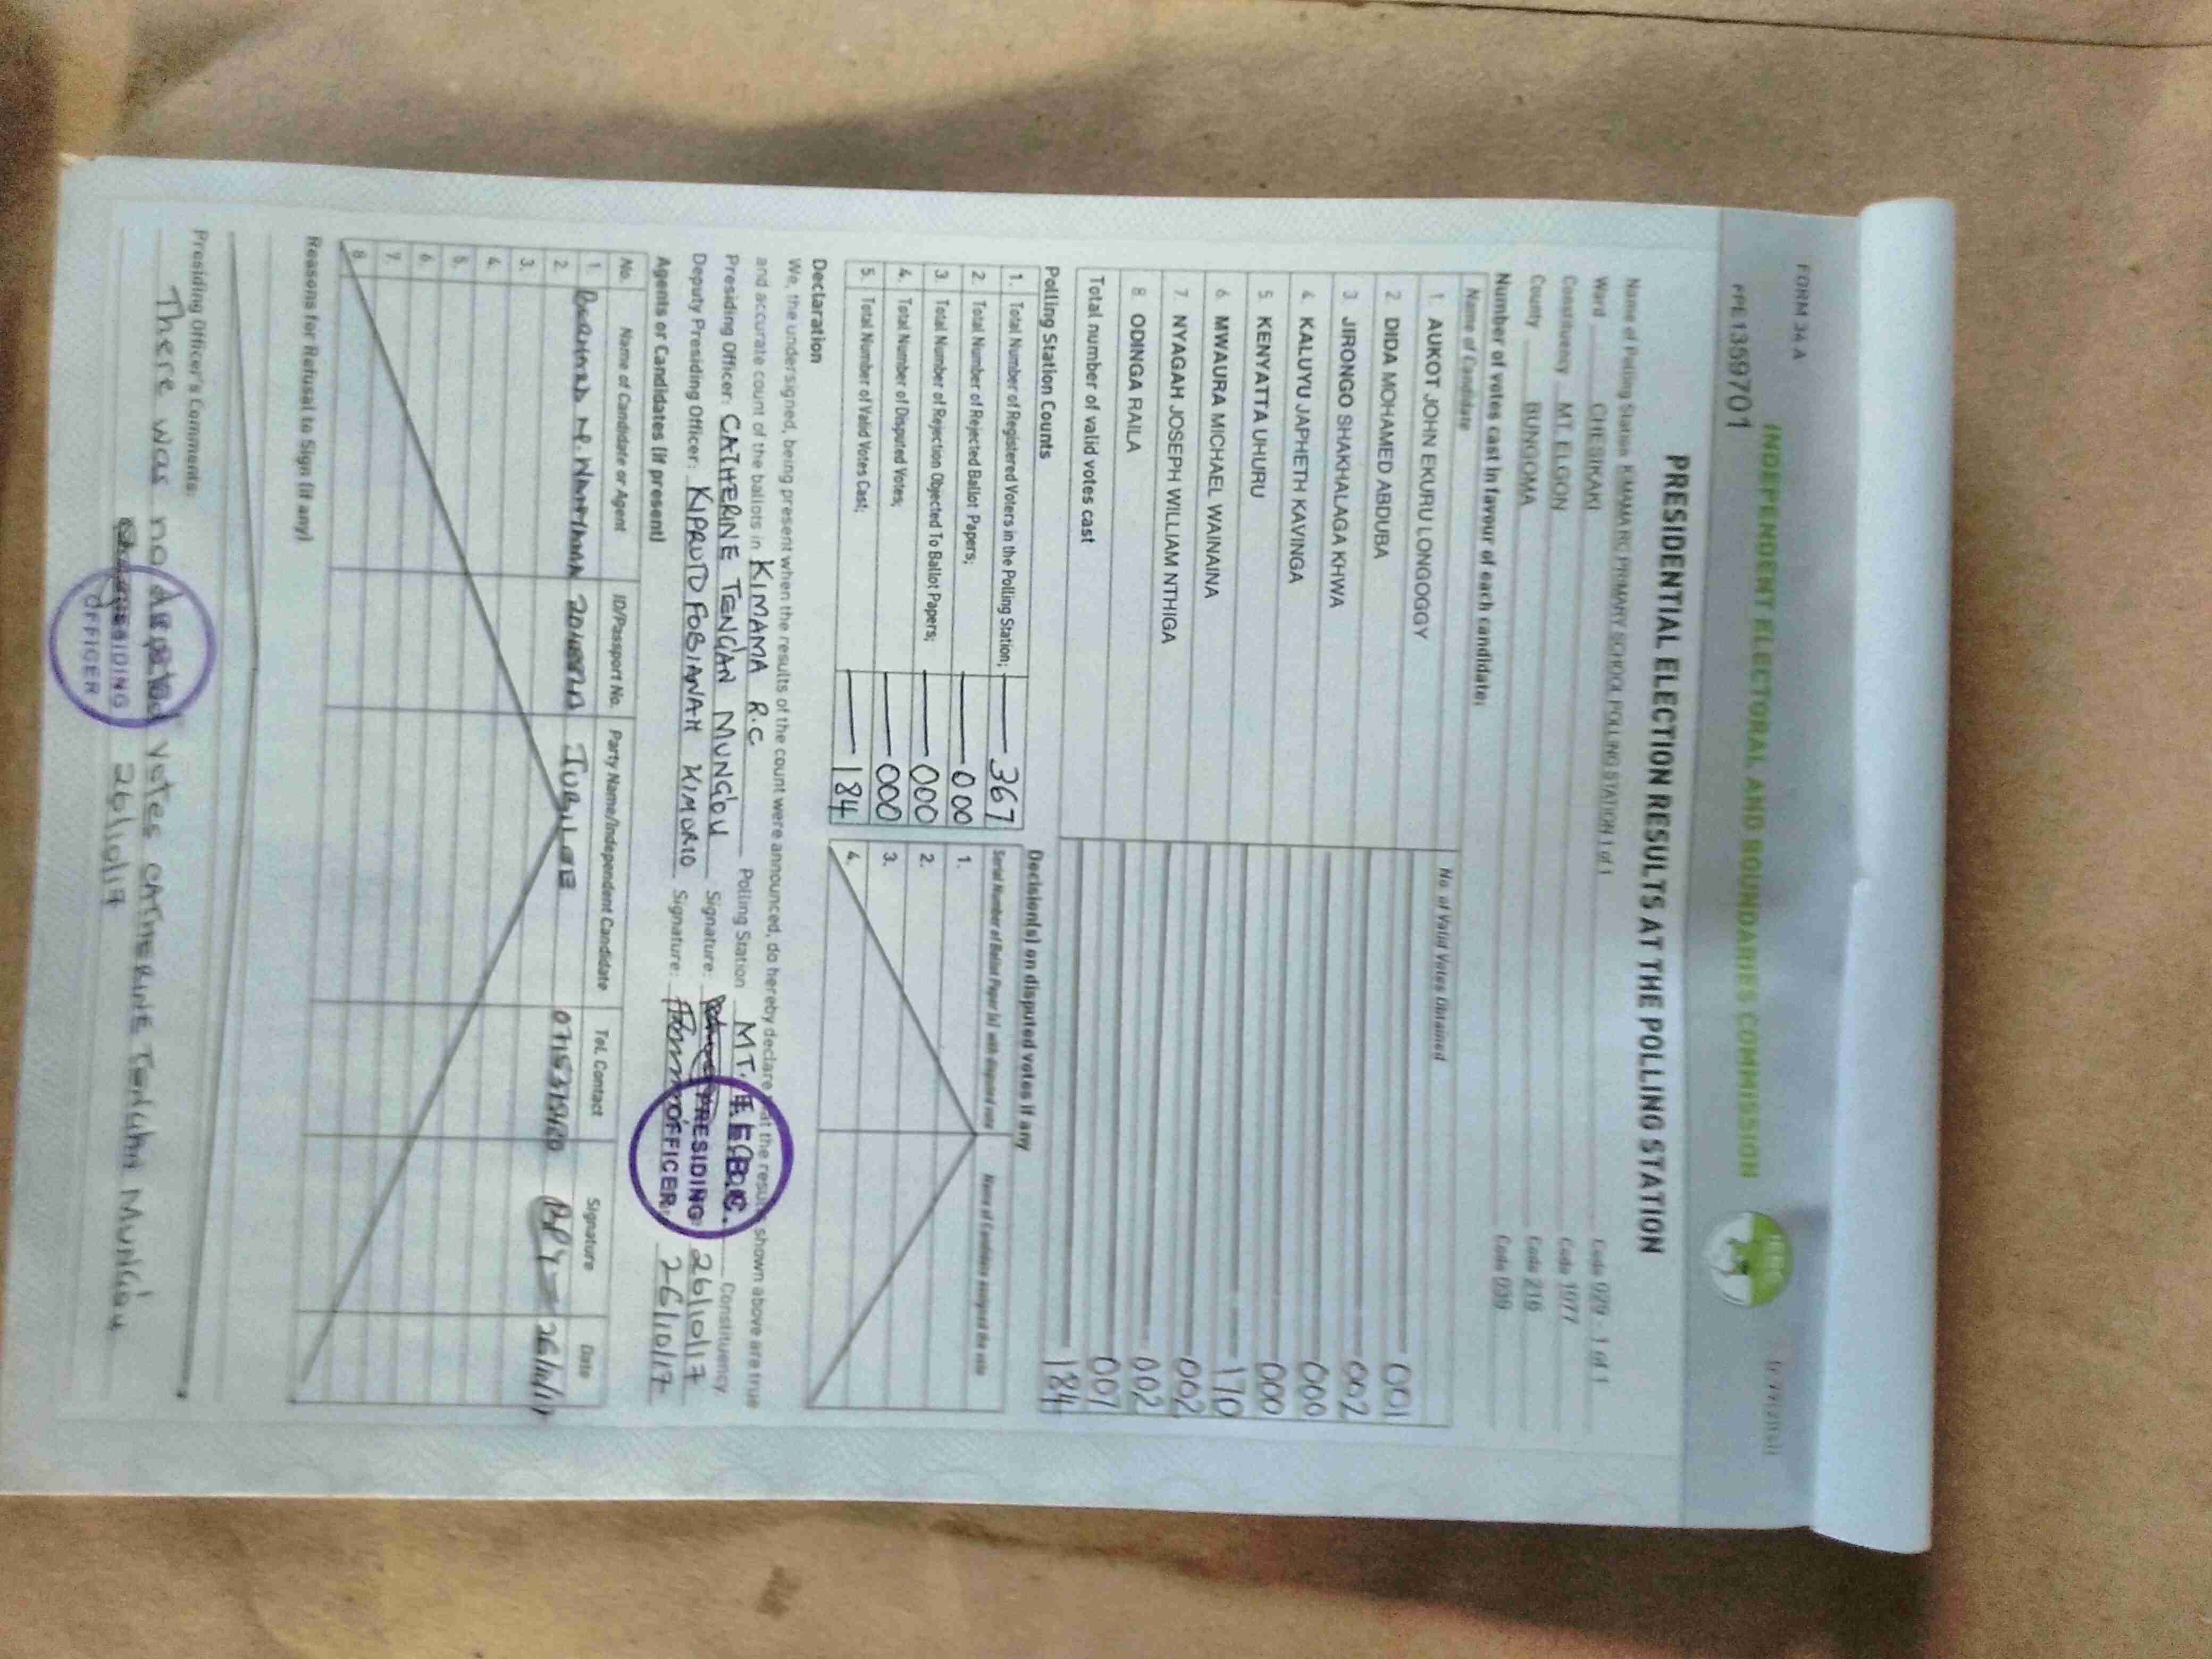 FORM 34 A
INDEPENDENT ELECTORAL AND BOUNDARIES COMMISSION
PPE 13597701
PRESIDENTIAL ELECTION RESULTS AT THE POLLING STATION
Name of Polling Station KIMAMA RC PRIMARY SCHOOL POLLING STATION 1 of 1 Code 029 - 1 of 1
Ward CHESIKAKI Code 1077
Constituency MT. ELGON Code 216
County BUNGOMA Code 039
Number of votes cast in favour of each candidate:
Name of Candidate No. of Valid Votes Obtained
1. AUKOT JOHN EKURU LONGOGGY 001
2. DIDA MOHAMED ABDUBA 002
3. JIRONGO SHAKHALAGA KHWA 000
4. KALUYU JAPHETH KAVINGA 000
5. KENYATTA UHURU 170
6. MWAURA MICHAEL WAINAINA 002
7. NYAGAH JOSEPH WILLIAM NTHIGA 002
8. ODINGA RAILA 007
Total number of valid votes cast 184
Polling Station Counts
1. Total Number of Registered Voters in the Polling Station; 367
2. Total Number of Rejected Ballot Papers; 000
3. Total Number of Rejection Objected To Ballot Papers; 000
4. Total Number of Disputed Votes; 000
5. Total Number of Valid Votes Cast; 184
Decision(s) on disputed votes if any
Serial Number of Ballot Paper (s) with disputed vote Name of Candidate assigned the vote
1.
2.
3.
4.
Declaration
We, the undersigned, being present when the results of the count were announced, do hereby declare that the results shown above are true
and accurate count of the ballots in KIMAMA R.C Polling Station MT. Constituency.
Presiding Officer: CATHERINE TENGAN MUNGOU Signature: 26/10/17
Deputy Presiding Officer: KIPRUTO FOBIANAH KIMORIO Signature: 26/10/17
PRESIDING
OFFICER
Agents or Candidates (if present)
No. Name of Candidate or Agent ID/Passport No. Party Name/Independent Candidate Tel. Contact Signature Date
1. JUBILEE 26/10/17
2.
3.
4.
5.
6.
7.
8.
Reasons for Refusal to Sign (if any)
Presiding Officer's Comments:
There was no disputed votes CATHERINE TENGAN MUNGOU
26/10/17
PRESIDING
OFFICER